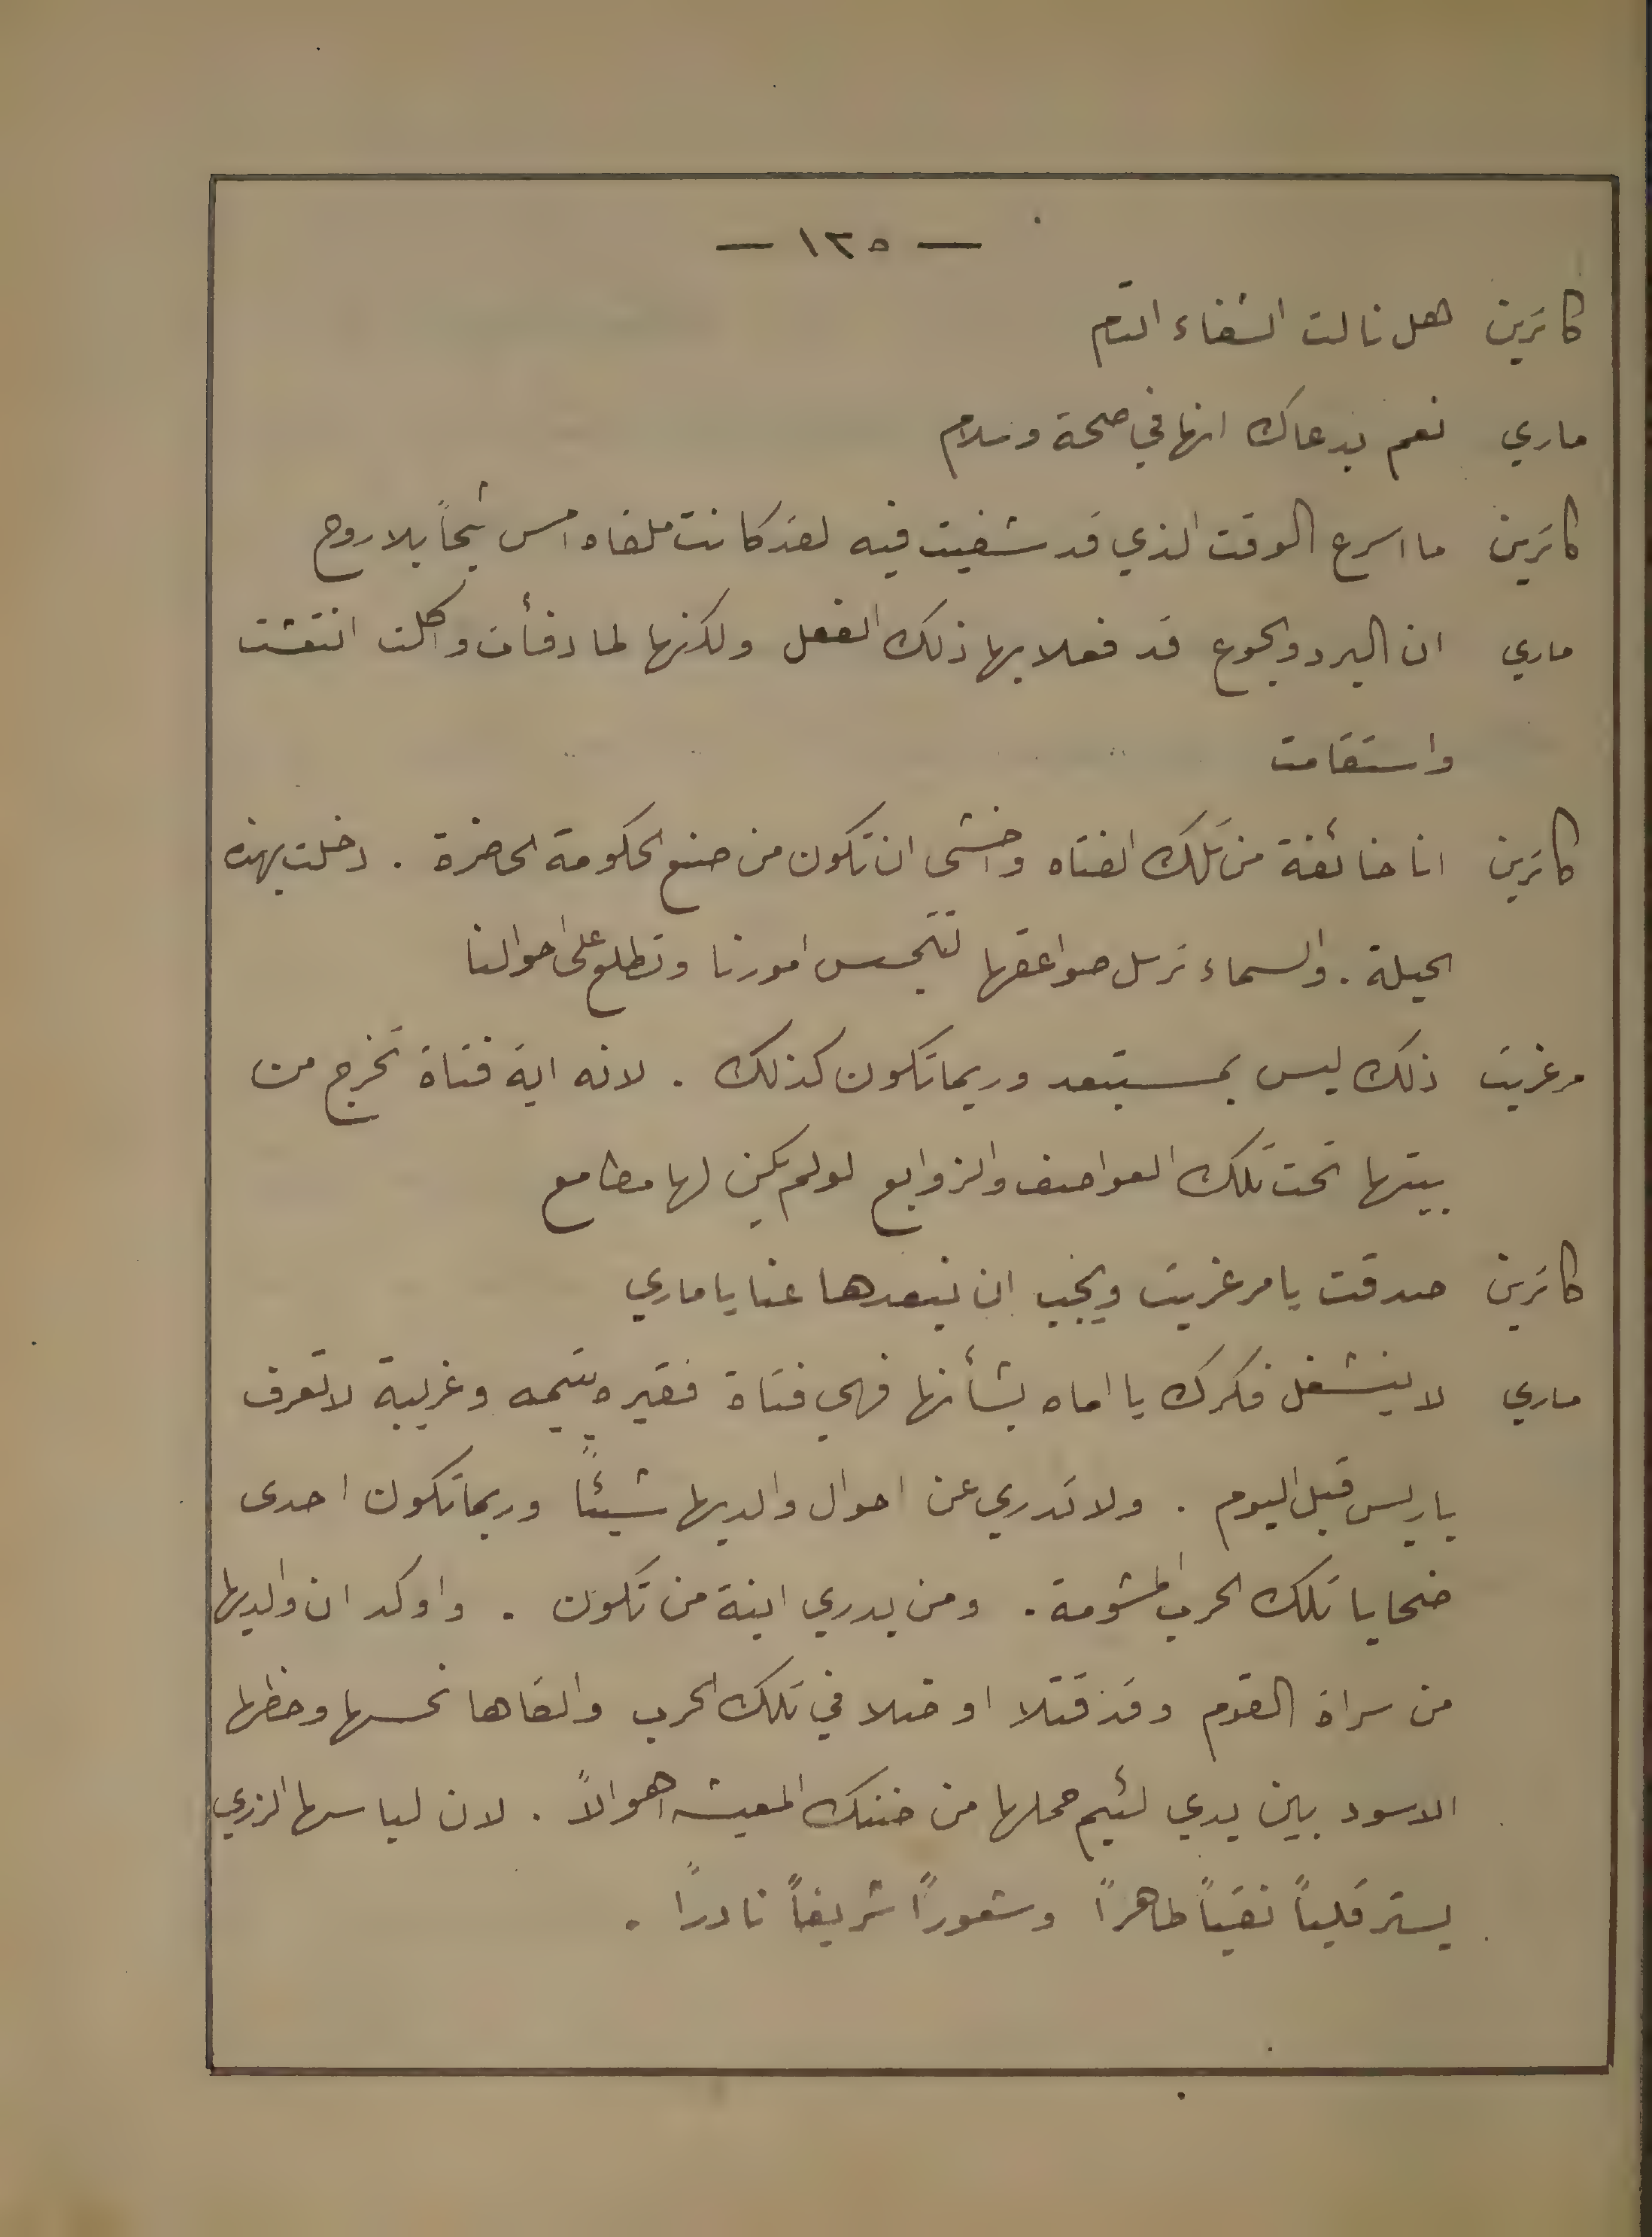 — ١٢٥ —
كاترين هل نالت الشفاء التام
ماري نعم بدعاك انها في صحة وسلام
كاترين ما اسرع الوقت الذي قد شفيت فيه لقد كانت ملقاه امس شبحاً بلا روح
ماري ان البرد والجوع قد فعلا بها ذلك الفعل ولكنها لما دفأت واكلت انتعشت
واستقامت
كاترين انا خائفة من تلك الفتاه واخشى ان تكون من صنع الحكومة الحاضرة . دخلت بهذه
الحيلة . والسماء ترسل صواعقها لتتجسس امورنا وتطلع على احوالنا
مرغريت ذلك ليس بمستبعد وربما تكون كذلك . لانه اية فتاة تخرج من
بيتها تحت تلك العواصف والزوابع لو لم يكن لها مطامع
كاترين صدقت يا مرغريت ويجب ان نبعدها عنا يا ماري
ماري لا ينشغل فكرك يا اماه بشأنها فهي فتاة فقيره يتيمه وغريبة لا تعرف
باريس قبل اليوم . ولا تدري عن احوال والديها شيئاً وربما تكون احدى
ضحايا تلك الحرب المشومة . ومن يدري ابنة من تكون . واوكد ان والديها
من سراة القوم وقد قتلا او ضلا في تلك الحرب والقاها نحسها وحظها
الاسود بين يدي لئيم حملها من ضنك المعيشه اهوالاً . لان لباسها الزري
يستر قلباً نقياً طاهراً وشعوراً شريفاً نادراً .